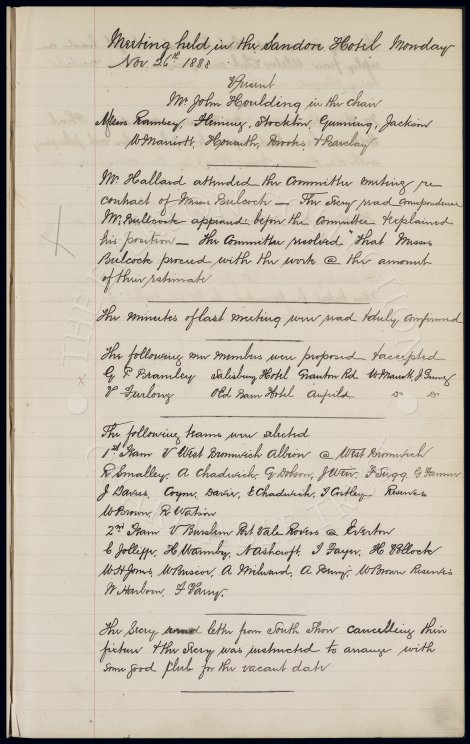 Meeting held in the Sandon Hotel Monday
Nov 26th 1888
Present
Mr John Houlding in the chair
Messrs Ramsey, Fleming, Stockton, Gunning, Jackson
W Marriott, Howarth, Brooks, & Barclay
Mr Halland attended the Committee meeting re
contract of Messrs Bulcock - The Secy read correspondence
Mr Bullcock appeared before the Committee & explained
his position - The Committee resolved "That Messrs
Bulcock proceed with the work @ the amount
of their estimate
The minutes of last meeting were read & duly confirmed
The following new members were proposed & accepted
G P Bramley Salisbury Hotel Granton Rd W Marriott, J Gunning
V Furlong Old Barn Hotel Anfield do do
The following teams were selected
1st Team V West Bromwich Albion @ West Bromwich
R Smalley, A Chadwick, G Dobson, J Weir, F Sugg, G Farmer
J Davies, Coyne, Davie, E Chadwick, J Costley Reserves
W Brown, R Watson
2nd Team V Burslem Port Vale Rovers @ Everton
C Jolliffe, H Warmby, N Ashcroft, T Fayer, H Pollock
W H Jones, W Briscoe, A Milward, A Berry, W Brown Reserves
W Harbour, F Parry
The Secy read letter from South Shore cancelling their
fixture & the Secy was instructed to arrange with
some good club for the vacant date